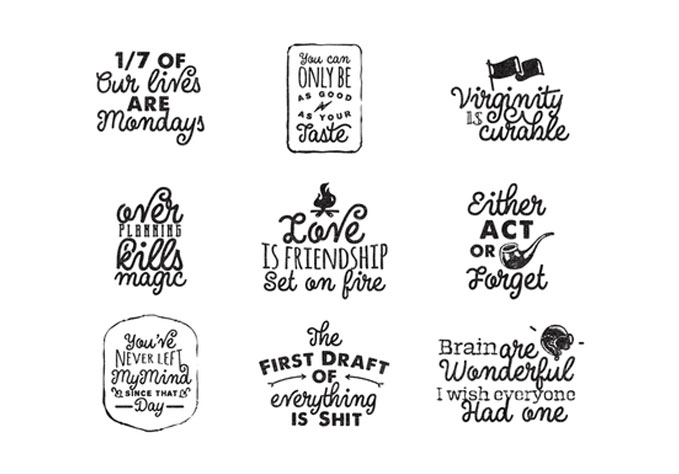 1/7 OF
Our lives
ARE
Mondays
You can
ONLY BE
AS GOOD
AS YOUR
Taste
Virginity
IS curable
over
PLANNING
kills
magic
Love
IS FRIENDSHIP
Set on fire
Either
ACT
OR
Forget
You've
NEVER LEFT
My Mind
SINCE THAT
Day
The
FIRST DRAFT
OF
everything
IS SHIT
Brain are
Wonderful
I wish everyone
Had one